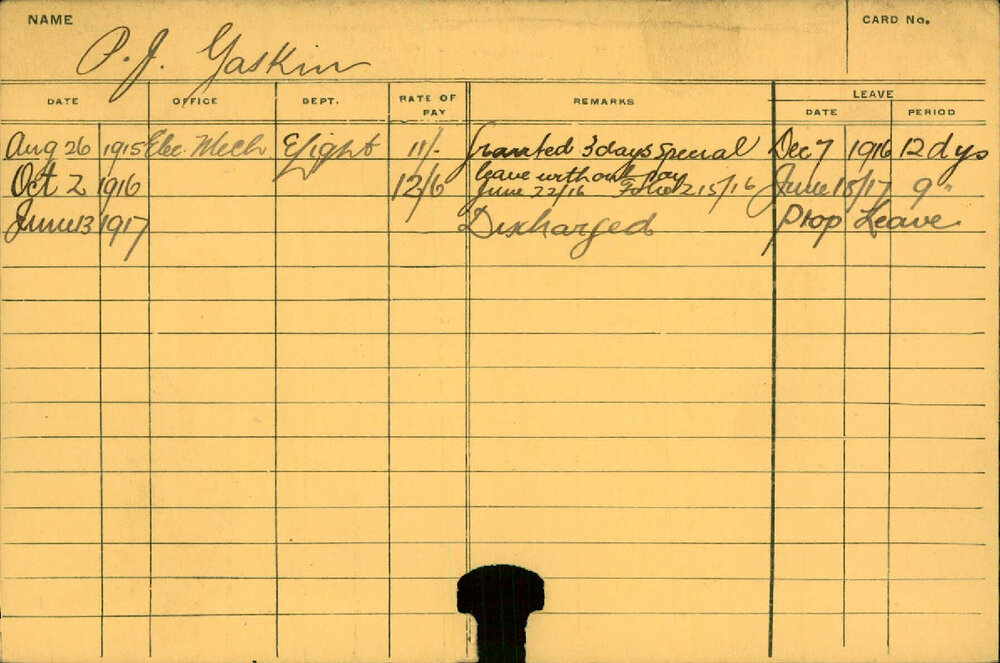 NAME
CARD No.
P. J. Gaskin
DATE OFFICE DEPT. RATE OF PAY REMARKS LEAVE
DATE PERIOD
Aug 26 1915 Elec. Mech E/Light 11/- Granted 3 days special Dec 7 1916 12 dys
leave without pay
Oct 2 1916 12/6 June 22/16 Folio 215/16 June 18/17 9 "
June 13 1917 Discharged Prop Leave